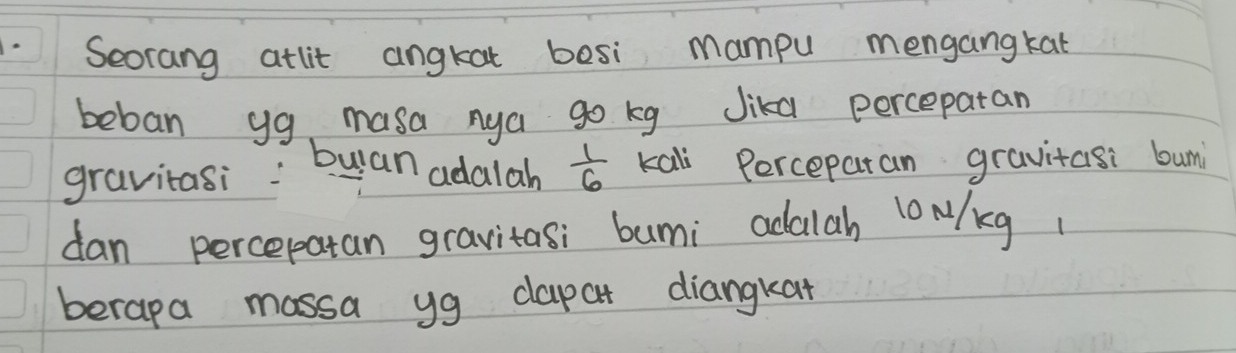 1. Seorang atlit angkat besi mampu mengangkat
beban yg masa nya 90 kg Jika percepatan
gravitasi : bulan adalah 1/6 kali Percepatan gravitasi bumi
dan percepatan gravitasi bumi adalah 10 N/kg ,
berapa massa yg dapat diangkat